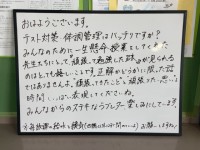 おはようございます。
テスト対策・体調管理はバッチリですか?
みんなのために一生懸命授業をしてきた
先生たちにとって、頑張って勉強した跡が見られる
のはとても嬉しいことです。正解かどうかに限った話
ではありません。"頑張ってきたこと"と"頑張った思い"を
時間いっぱい表現してくださいね。
みんなからのステキなラブレター楽しみにしてます。